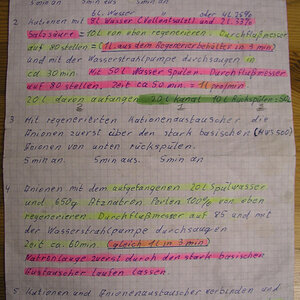 5min on 5min aus. 5min an
6L Wasser oder 4L 25%
2. Kationen mit 8L Wasser (Vollentsalzt) und 2L 33%
Salzsäure = 10L von oben regenerieren. Durchflußmesser
auf 80 stellen = (1L aus dem Regenerierbehälter in 3 min)
und mit der Wasserstrahlpumpe durchsaugen in
ca 30min Mit 50L Wasser spülen Durchflußmesser
auf 80 stellen. Zeit ca 50min = 1L pro/min
20L davon auffangen 20L Kanal 10L Rückspülen
3 Mit regenerierten Kationenaustauscher die
Anionen zuerst über den stark basischen (MUS500)
Anionen von unten rückspülen.
5min an. 5min aus. 5min an
4 Anionen mit dem aufgefangenen 20L Spülwasser
und 650g Ätznatron Perlen 100% von oben
regenerieren. Durchflußmesser auf 85 und mit
der Wasserstrahlpumpe durchsaugen
Zeit ca. 60min. (gleich 1L in 3min)
Natronlauge zuerst durch den stark basischen
Austauscher laufen lassen.
5 Kationen und Anionenaustauscher verbinden und